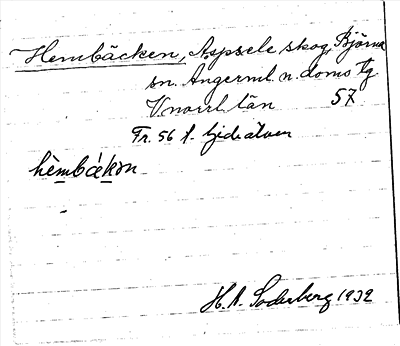 Hembäcken, Aspsele skog, Björna
sn. Ångerml. n. doms tg
V.norrl. län 57
Tr. 56 f. Gideälven
hèmbák̠ən
H. A. Söderberg 1932